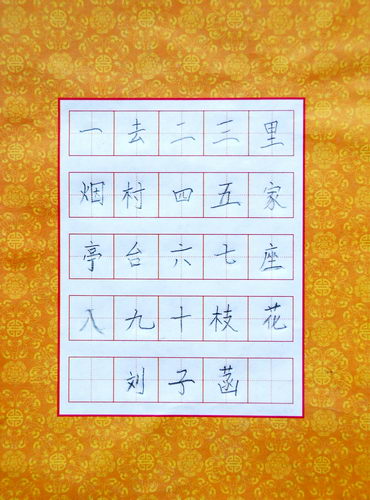 一去二三里
烟村四五家
亭台六七座
八九十枝花
刘子菡